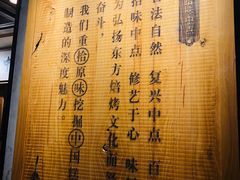 法自然 复兴中点 百
拾味中点 修艺于心 味
为弘扬东方焙烤文化而
奋斗，
我们重拾原味挖掘中国糕
制造的深度魅力。